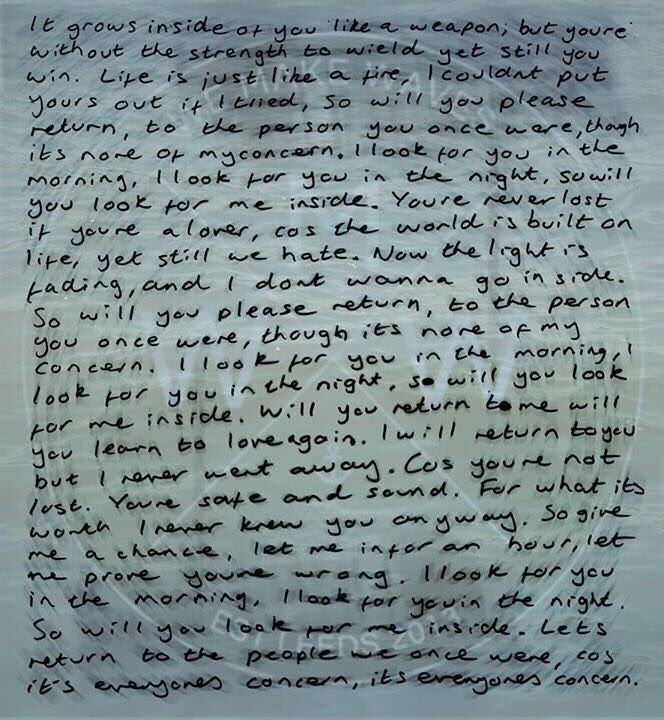 It grows inside of you like a weapon; but youre
without the strength to wield yet still you
win. Life is just like a fire, I couldnt put
yours out if I tried, so will you please
return, to the person you once were, though
its none of my concern. I look for you in the
morning, I look for you in the night, so will
you look for me inside. Youre never lost
if youre a lover, cos the world is built on
life, yet still we hate. Now the light is
fading, and I dont wanna go inside.
So will you please return, to the person
you once were, though its none of my
concern. I look for you in the morning, I
look for you in the night, so will you look
for me inside. Will you return to me will
you learn to love again. I will return to you
but I never went away. Cos youre not
lost. Youre safe and sound. For what its
worth I never knew you anyway. So give
me a chance, let me in for an hour, let
me prove youre wrong. I look for you
in the morning, I look for you in the night.
So will you look for me inside. Lets
return to the people we once were, cos
it's everyones concern, its everyones concern.
MAKE WAVES
EST LEEDS